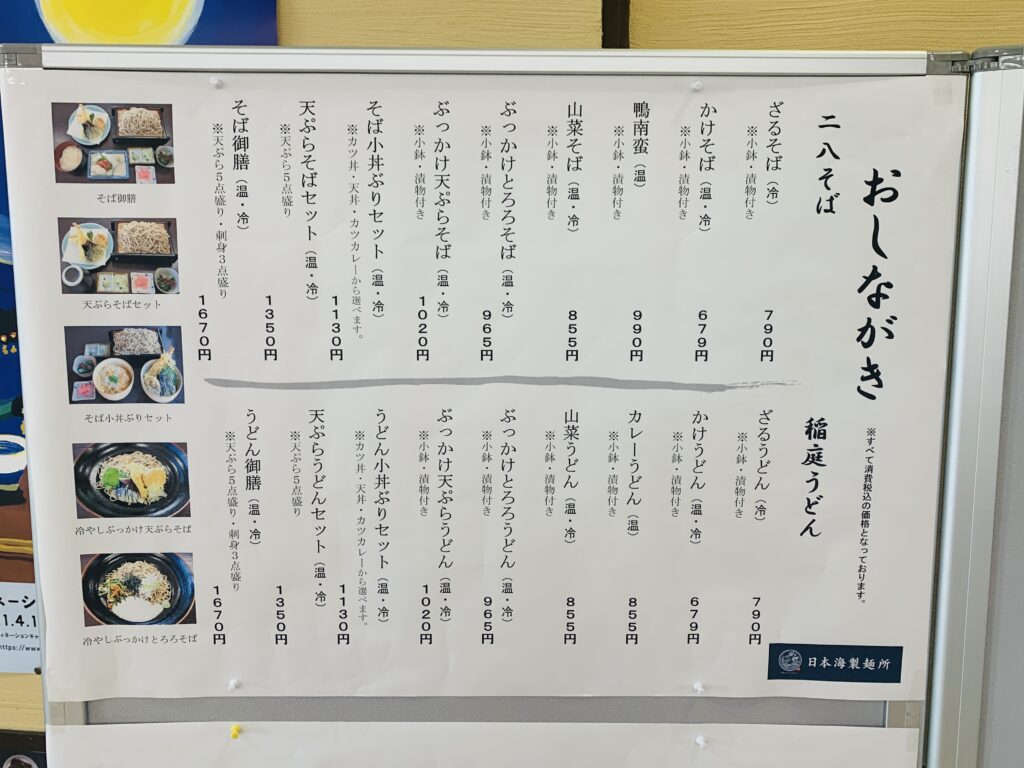 おしながき
※すべて消費税込の価格となっております。
二八そば
ざるそば（冷）
※小鉢・漬物付き
790円
かけそば（温・冷）
※小鉢・漬物付き
679円
鴨南蛮（温）
※小鉢・漬物付き
990円
山菜そば（温・冷）
※小鉢・漬物付き
855円
ぶっかけとろろそば（温・冷）
※小鉢・漬物付き
965円
ぶっかけ天ぷらそば（温・冷）
※小鉢・漬物付き
1020円
そば小丼ぶりセット（温・冷）
※カツ丼・天丼・カツカレーから選べます。
1130円
天ぷらそばセット（温・冷）
※天ぷら5点盛り
1350円
そば御膳（温・冷）
※天ぷら5点盛り・刺身3点盛り
1670円
稲庭うどん
ざるうどん（冷）
※小鉢・漬物付き
790円
かけうどん（温・冷）
※小鉢・漬物付き
679円
カレーうどん（温）
※小鉢・漬物付き
855円
山菜うどん（温・冷）
※小鉢・漬物付き
855円
ぶっかけとろろうどん（温・冷）
※小鉢・漬物付き
965円
ぶっかけ天ぷらうどん（温・冷）
※小鉢・漬物付き
1020円
うどん小丼ぶりセット（温・冷）
※カツ丼・天丼・カツカレーから選べます。
1130円
天ぷらうどんセット（温・冷）
※天ぷら5点盛り
1350円
うどん御膳（温・冷）
※天ぷら5点盛り・刺身3点盛り
1670円
そば御膳
天ぷらそばセット
そば小丼ぶりセット
冷やしぶっかけ天ぷらそば
冷やしぶっかけとろろそば
日本海製麺所
ネーシ
1.4.1
ィネーションキャ
https://www